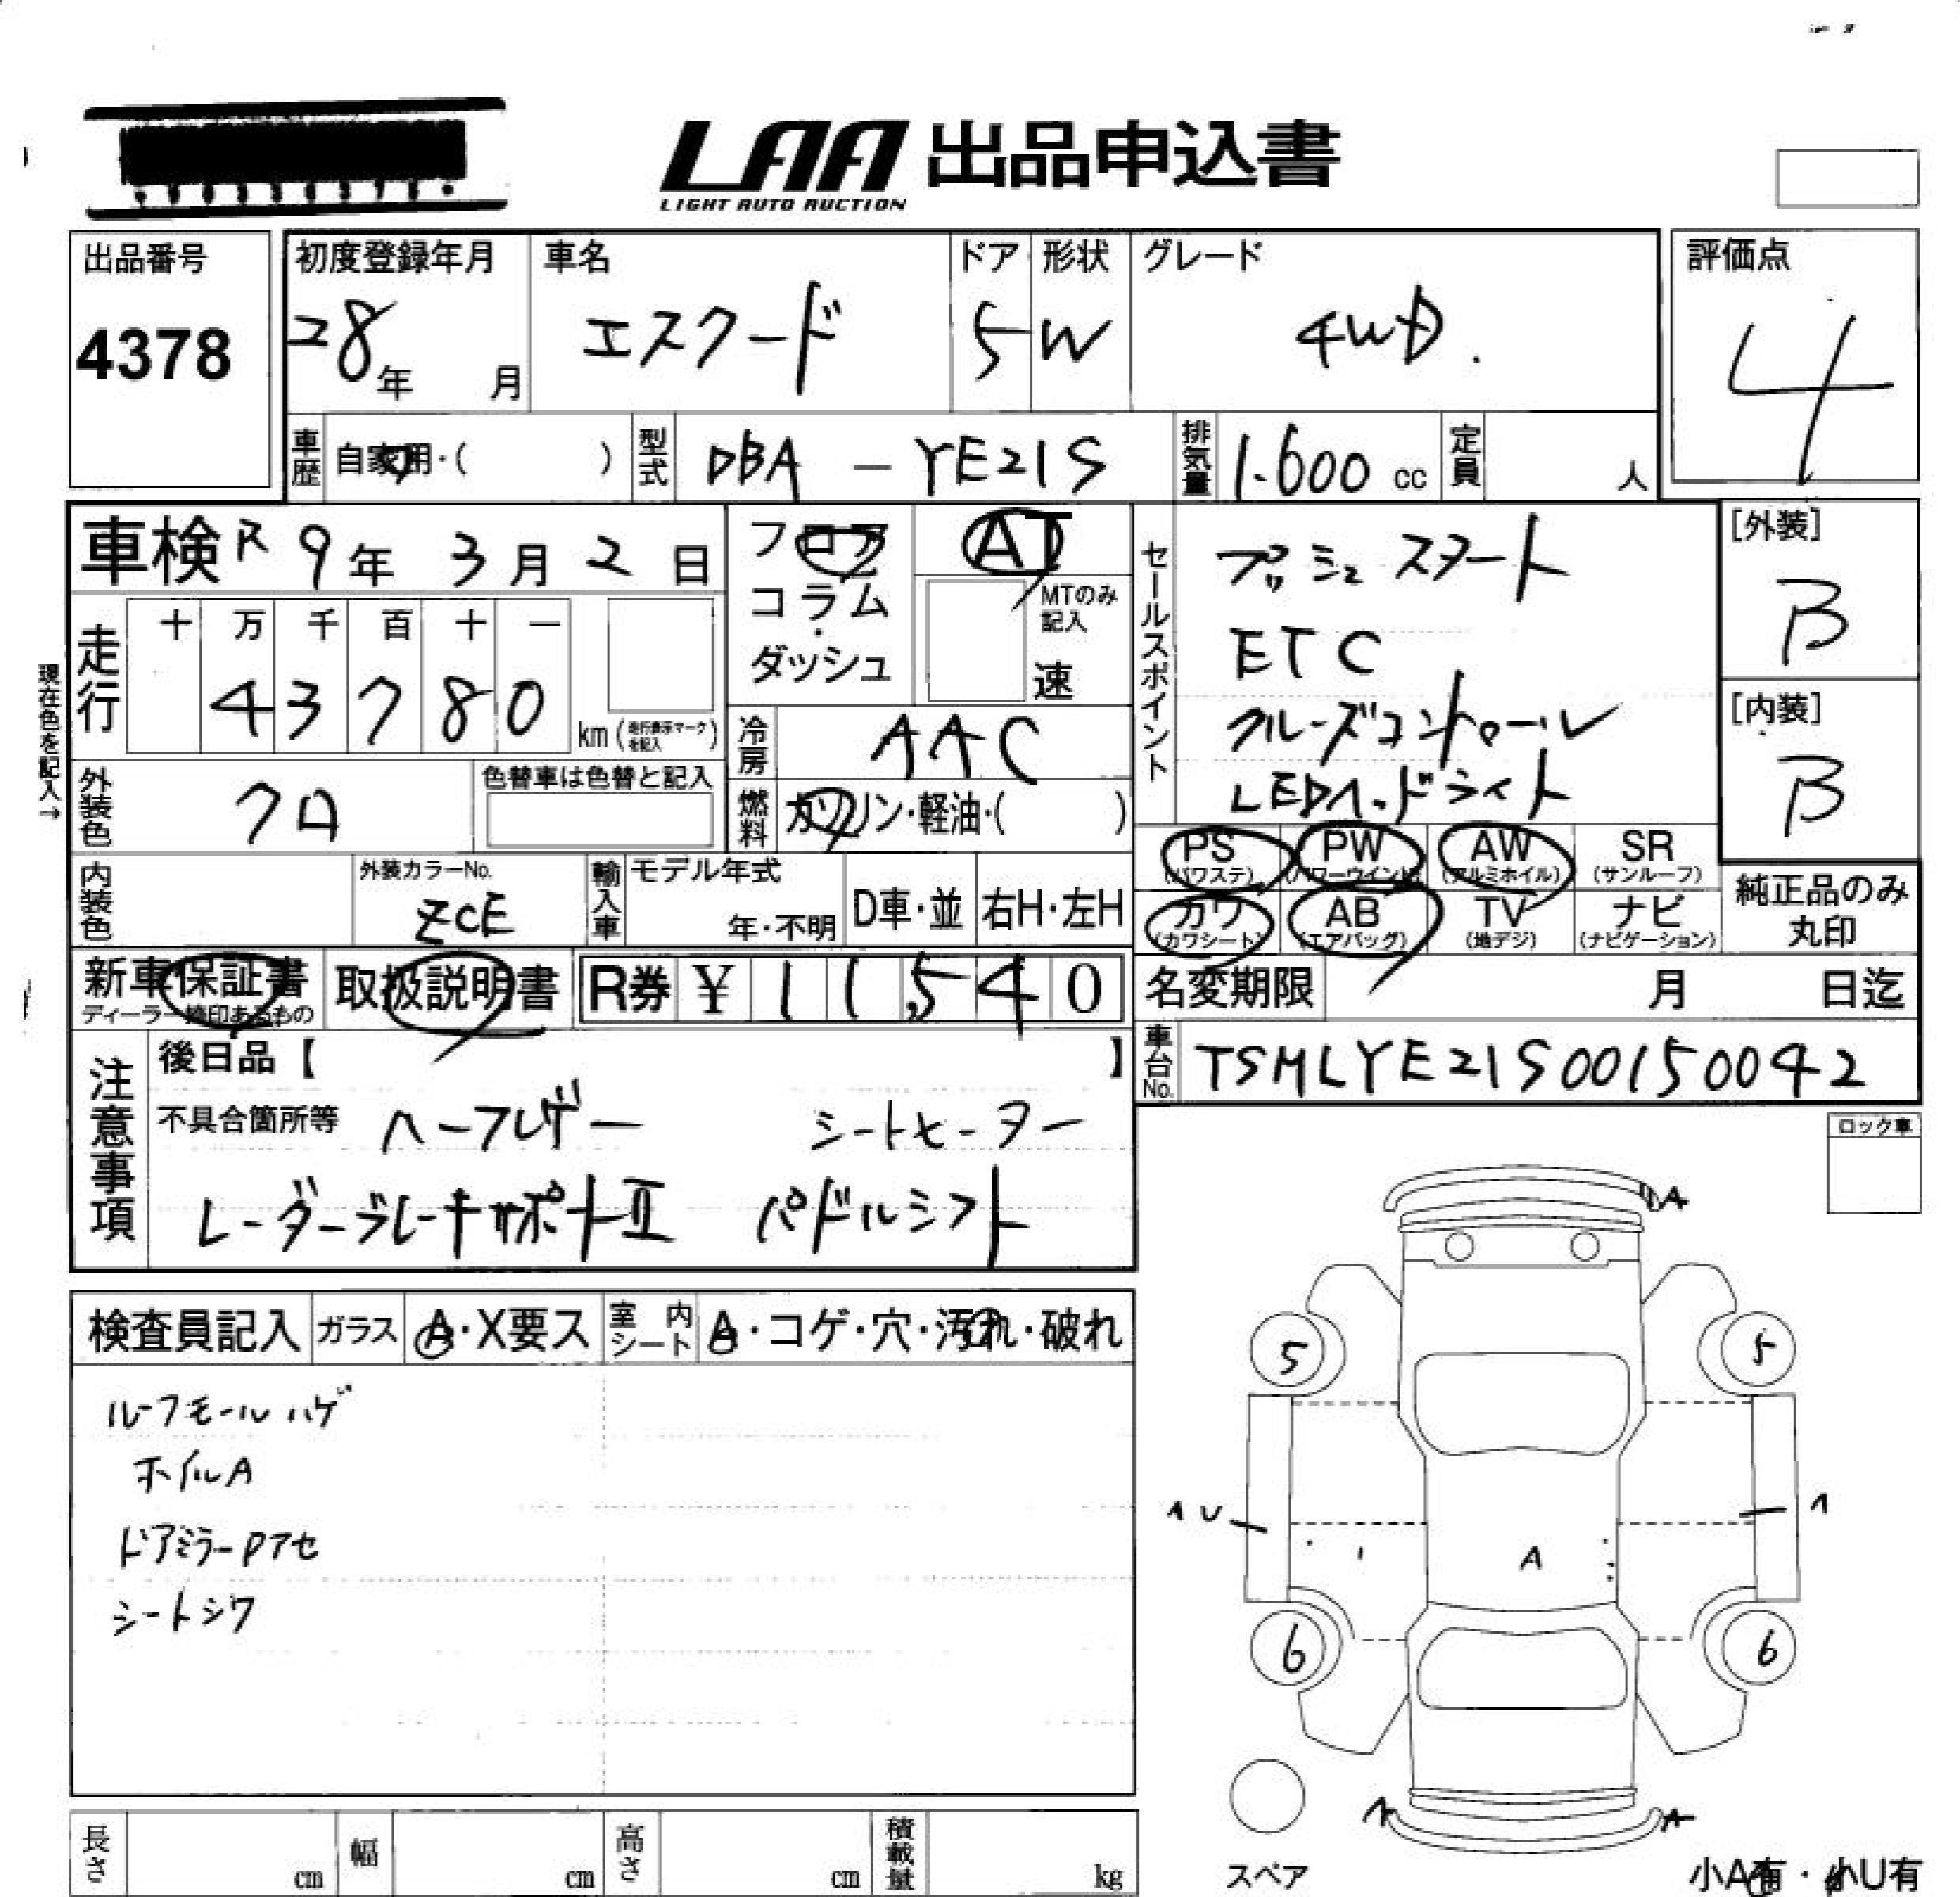 LAA 出品申込書
LIGHT AUTO AUCTION
出品番号
4378
初度登録年月
28年 月
車名
エスクード
ドア
5
形状
W
グレード
4WD.
評価点
4
車歴
自家用・( )
型式
DBA - YE21S
排気量
1.600 cc
定員
人
車検 R 9年 3月 2日
フロア
コラム・
ダッシュ
AT
MTのみ記入
速
走行
十 万 千 百 十 一
4 3 7 8 0
km (走行表示マークを記入)
現在色を記入→
冷房
AAC
燃料
ガソリン・軽油・( )
外装色
クロ
色替車は色替と記入
内装色
外装カラーNo.
ZCE
輸入車
モデル年式
年・不明
D車・並
右H・左H
セールスポイント
プッシュスタート
ETC
クルーズコントロール
LEDヘッドライト
[外装]
B
[内装]
B
PS (パワステ)
PW (パワーウインド)
AW (アルミホイル)
SR (サンルーフ)
カワ (カワシート)
AB (エアバッグ)
TV (地デジ)
ナビ (ナビゲーション)
純正品のみ
丸印
新車保証書
ディーラー捺印あるもの
取扱説明書
R券 ¥ 11,540
名変期限 月 日迄
車台No.
TSMLYE21S00150042
注意事項
後日品【 】
不具合箇所等
ハーフレザー シートヒーター
レーダーブレーキサポートⅡ パドルシフト
ロック車
検査員記入
ガラス
A・X要ス
室内シート
A・コゲ・穴・汚れ・破れ
ルーフモールハゲ
ホイルA
ドアミラーPアセ
シートシワ
A
5 5
A U
A
A
6 6
A A
スペア
小A有・小U有
長さ cm
幅 cm
高さ cm
積載量 kg